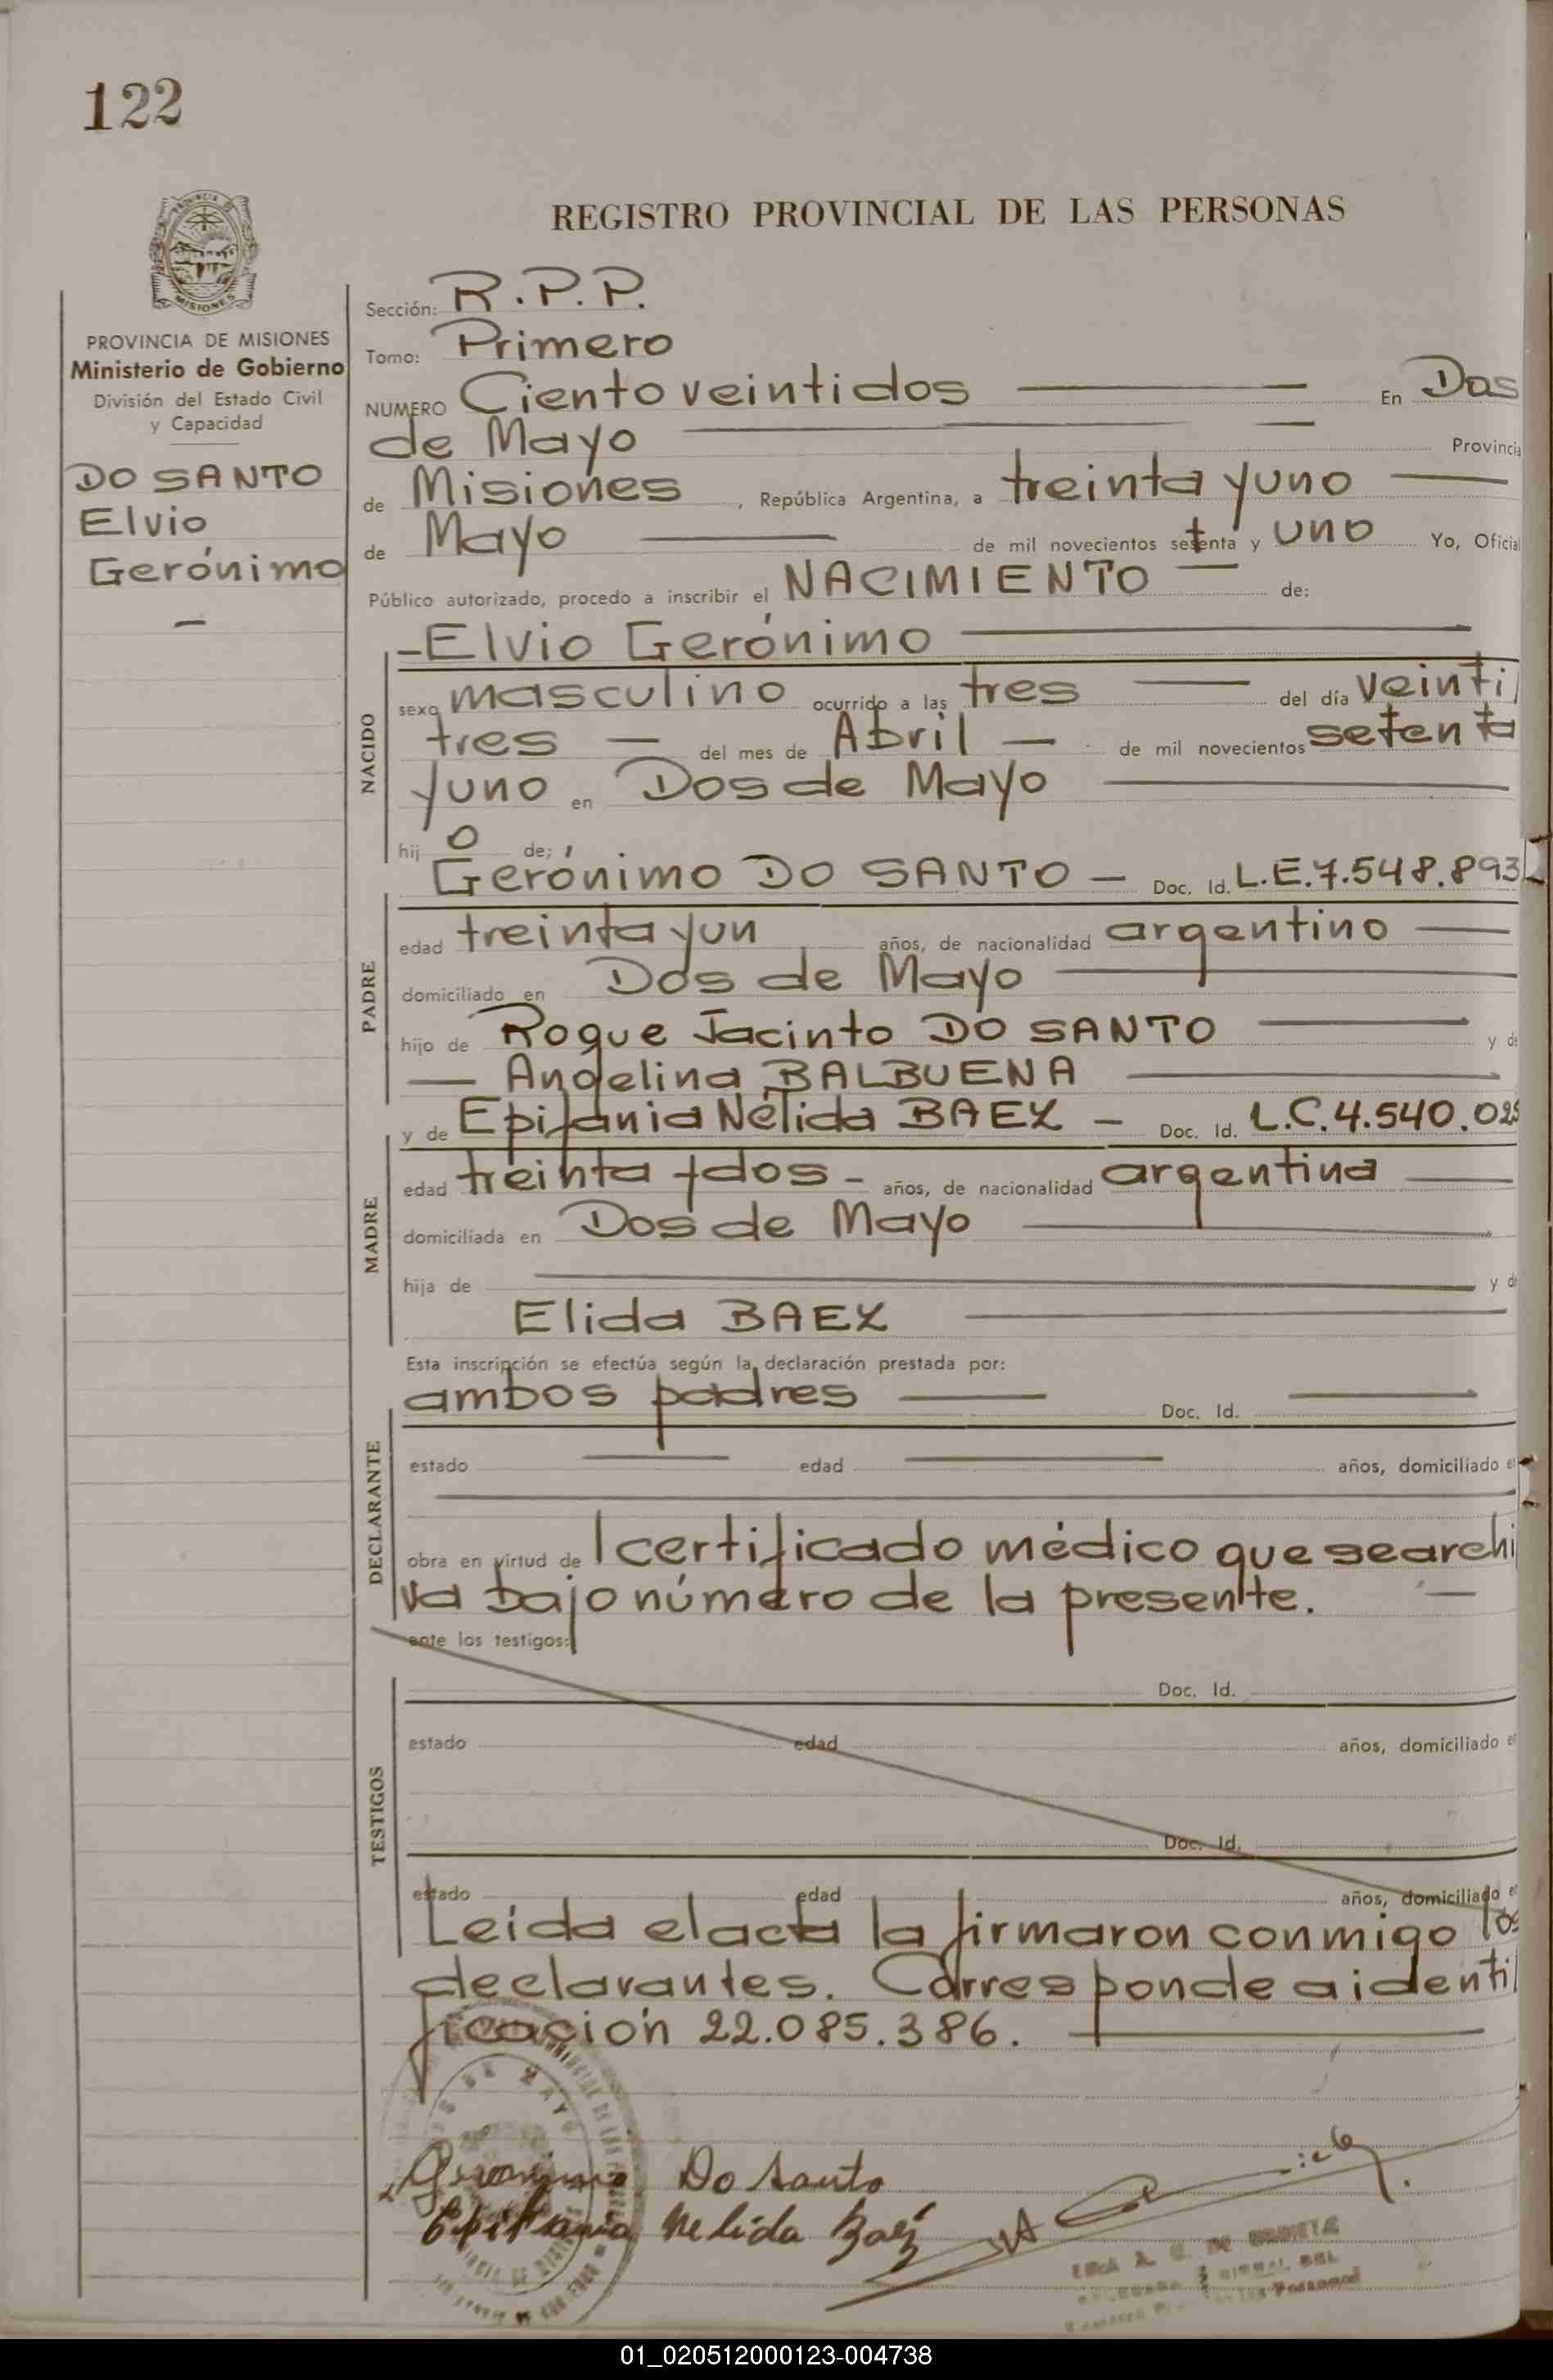 122
REGISTRO PROVINCIAL DE LAS PERSONAS
MISIONES
PROVINCIA DE MISIONES
Ministerio de Gobierno
División del Estado Civil
y Capacidad
DO SANTO
Elvio
Gerónimo
Sección: R.P.P.
Tomo: Primero
NUMERO Ciento veintidos En Dos
de Mayo Provincia
de Misiones, República Argentina, a treinta y uno
de Mayo de mil novecientos setenta y uno Yo, Oficial
Público autorizado, procedo a inscribir el NACIMIENTO de:
NACIDO
- Elvio Gerónimo
sexo masculino ocurrido a las tres del día veinti
tres del mes de Abril de mil novecientos setenta
y uno en Dos de Mayo
hijo de;
PADRE
Gerónimo DO SANTO - Doc. Id. L.E. 7.548.893
edad treinta y un años, de nacionalidad argentino
domiciliado en Dos de Mayo
hijo de Roque Jacinto DO SANTO y de
Angelina BALBUENA
MADRE
y de Epifania Nélida BAEZ - Doc. Id. L.C. 4.540.025
edad treinta y dos - años, de nacionalidad argentina
domiciliada en Dos de Mayo
hija de y de
Elida BAEZ
Esta inscripción se efectúa según la declaración prestada por:
DECLARANTE
ambos padres Doc. Id.
estado edad años, domiciliado en
obra en virtud de l certificado médico que se archi
va bajo número de la presente.
ante los testigos:
TESTIGOS
Doc. Id.
estado edad años, domiciliado en
Doc. Id.
estado edad años, domiciliado en
Leida el acta la firmaron conmigo los
declarantes. Corresponde a identi
ficación 22.085.386.
Geronimo Do Santo
Epifania Nelida Baéz
01_020512000123-004738